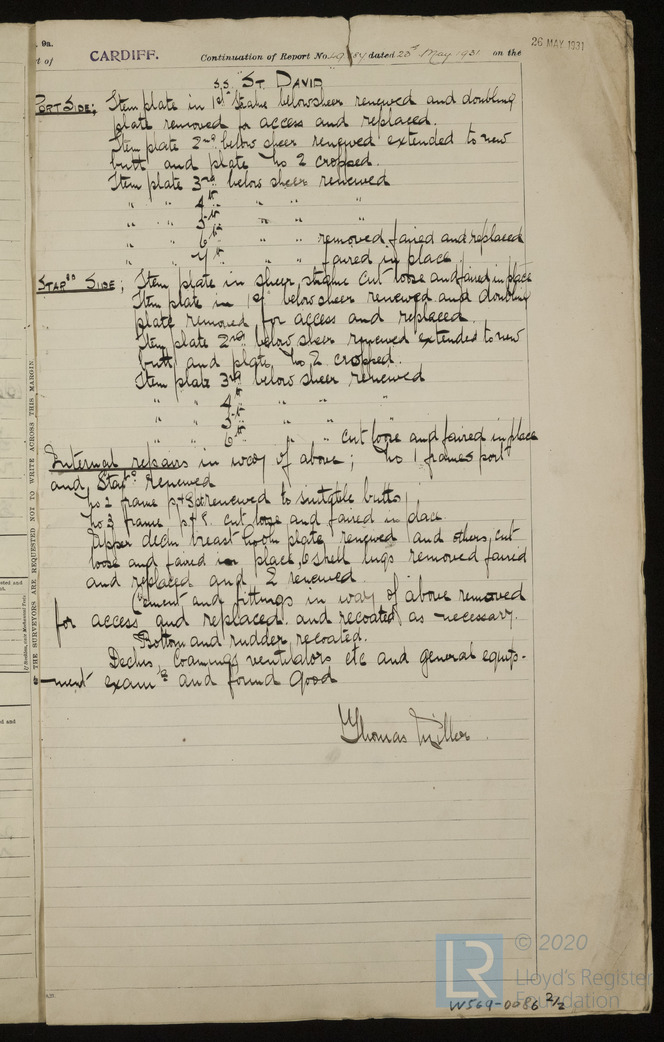 . 9a.
t of CARDIFF. Continuation of Report No. dated 23rd May 1931 on the
26 MAY 1931
S.S. "ST. DAVID"
PORT SIDE; Stem plate in 1st Strake below sheer renewed and doubling
plate removed for access and replaced.
Stem plate 2nd below sheer renewed extended to new
butt and plate No 2 cropped.
Stem plate 3rd below sheer renewed
" " 4th " " "
" " 5th " " "
" " 6th " " removed faired and replaced
" " 7th faired in place
STARBD SIDE; Stem plate in sheer strake cut loose and faired in place
Stem plate in 1st below sheer renewed and doubling
plate removed for access and replaced.
Stem plate 2nd below sheer renewed extended to new
butt and plate No 2 cropped.
Stem plate 3rd below sheer renewed
" " 4th " " "
" " 5th " " "
" " 6th " " cut loose and faired in place
Internal repairs in way of above; No 1 frames port
and Starbd renewed
No 2 frame p & S renewed to suitable butts;
No 3 frame p & S. cut loose and faired in place
Upper deck breast hook plate renewed and others cut
loose and faired in place, 6 shell lugs removed faired
and replaced and 2 renewed.
Cement and fittings in way of above removed
for access and replaced and recoated as necessary.
Bottom and rudder recoated.
Decks, Coamings ventilators etc and general equip-
ment examd and found good
Thomas Miller.
THE SURVEYORS ARE REQUESTED NOT TO WRITE ACROSS THIS MARGIN
LR
© 2020
Lloyd's Register
Foundation
W569-0086 2/2